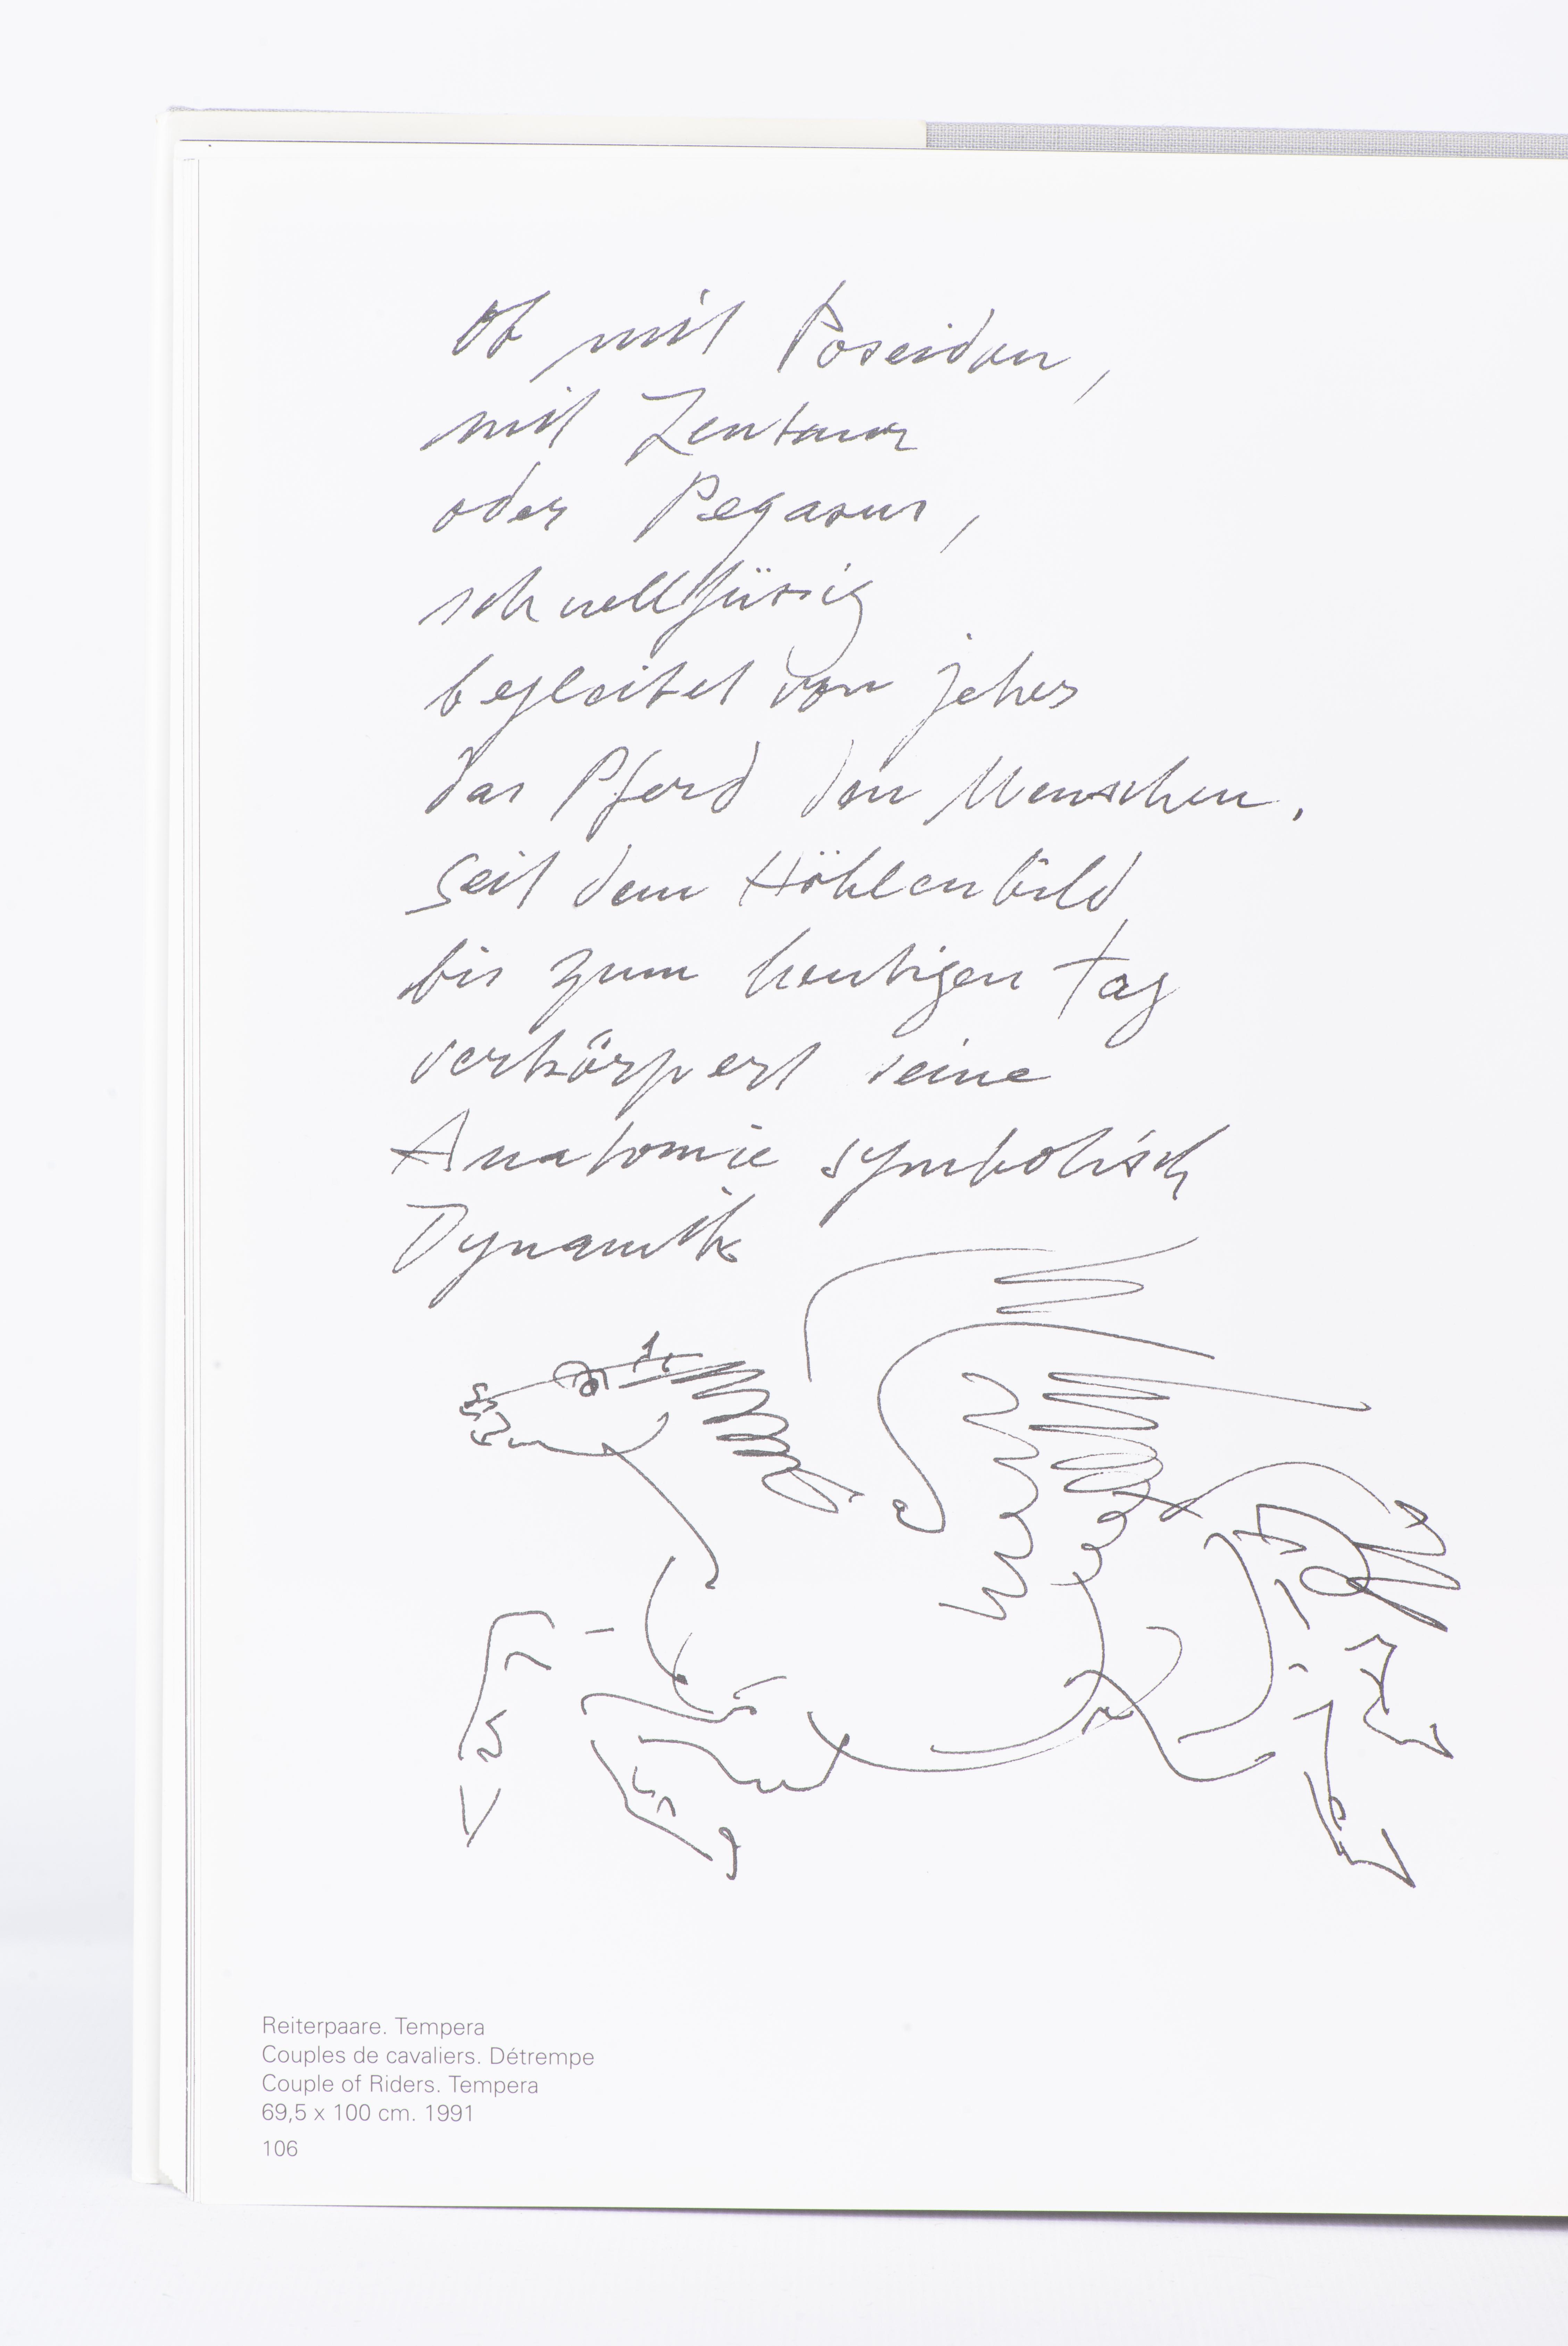 Ob mit Poseidon,
mit Zentaur
oder Pegasus,
schnellfüssig
begleitet von jeher
das Pferd den Menschen.
Seit dem Höhlenbild
bis zum heutigen Tag
verkörpert seine
Anatomie symbolisch
Dynamik
Reiterpaare. Tempera
Couples de cavaliers. Détrempe
Couple of Riders. Tempera
69,5 x 100 cm. 1991
106